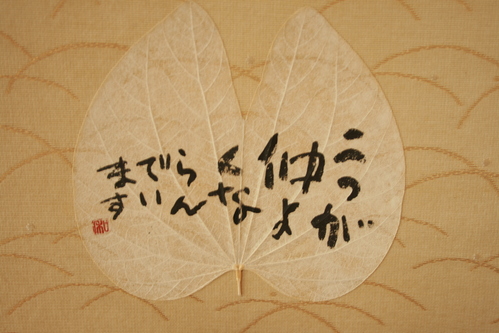 二つが
仲よ
くな
らん
でい
ます